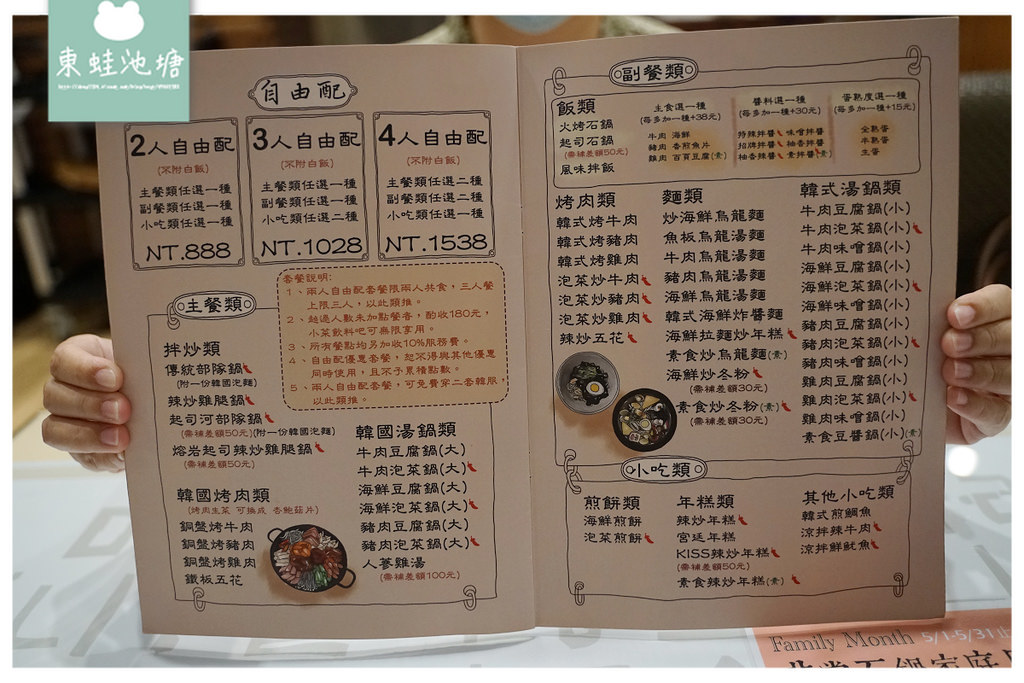 東蛙池塘
自由配
2人自由配
(不附白飯)
主餐類任選一種
副餐類任選一種
小吃類任選一種
NT.888
3人自由配
(不附白飯)
主餐類任選一種
副餐類任選一種
小吃類任選二種
NT.1028
4人自由配
(不附白飯)
主餐類任選二種
副餐類任選二種
小吃類任選一種
NT.1538
套餐說明:
1、兩人自由配套餐限兩人共食,三人餐
上限三人,以此類推。
2、超過人數未加點餐者,酌收180元,
小菜飲料吧可無限享用。
3、所有餐點均另加收10%服務費。
4、自由配優惠套餐,恕不得與其他優惠
同時使用,且不予累積點數。
5、兩人自由配套餐,可免費穿二套韓服,
以此類推。
主餐類
拌炒類
傳統部隊鍋
(附一份韓國泡麵)
辣炒雞腿鍋
起司河部隊鍋
(需補差額50元)(附一份韓國泡麵)
熔岩起司辣炒雞腿鍋
(需補差額50元)
韓國烤肉類
(烤肉生菜 可換成 杏鮑菇片)
銅盤烤牛肉
銅盤烤豬肉
銅盤烤雞肉
鐵板五花
韓國湯鍋類
牛肉豆腐鍋(大)
牛肉泡菜鍋(大)
海鮮豆腐鍋(大)
海鮮泡菜鍋(大)
豬肉豆腐鍋(大)
豬肉泡菜鍋(大)
人蔘雞湯
(需補差額100元)
副餐類
飯類
火烤石鍋
起司石鍋
(需補差額50元)
風味拌飯
主食選一種
(每多加一種+38元)
牛肉 海鮮
豬肉 香煎魚片
雞肉 百頁豆腐(素)
醬料選一種
(每多加一種+30元)
特辣拌醬 味噌拌醬
招牌拌醬 柚香拌醬
柚香辣醬 素拌醬(素)
蛋熟度選一種
(每多加一種+15元)
全熟蛋
半熟蛋
生蛋
烤肉類
韓式烤牛肉
韓式烤豬肉
韓式烤雞肉
泡菜炒牛肉
泡菜炒豬肉
泡菜炒雞肉
辣炒五花
麵類
炒海鮮烏龍麵
魚板烏龍湯麵
牛肉烏龍湯麵
豬肉烏龍湯麵
海鮮烏龍湯麵
韓式海鮮炸醬麵
海鮮拉麵炒年糕
素食炒烏龍麵(素)
海鮮炒冬粉
(需補差額30元)
素食炒冬粉(素)
(需補差額30元)
韓式湯鍋類
牛肉豆腐鍋(小)
牛肉泡菜鍋(小)
牛肉味噌鍋(小)
海鮮豆腐鍋(小)
海鮮泡菜鍋(小)
海鮮味噌鍋(小)
豬肉豆腐鍋(小)
豬肉泡菜鍋(小)
豬肉味噌鍋(小)
雞肉豆腐鍋(小)
雞肉泡菜鍋(小)
雞肉味噌鍋(小)
素食豆醬鍋(小)(素)
小吃類
煎餅類
海鮮煎餅
泡菜煎餅
年糕類
辣炒年糕
宮廷年糕
KISS辣炒年糕
(需補差額50元)
素食辣炒年糕(素)
其他小吃類
韓式煎鯛魚
涼拌辣牛肉
涼拌鮮魷魚
Family Month 5/1-5/31止